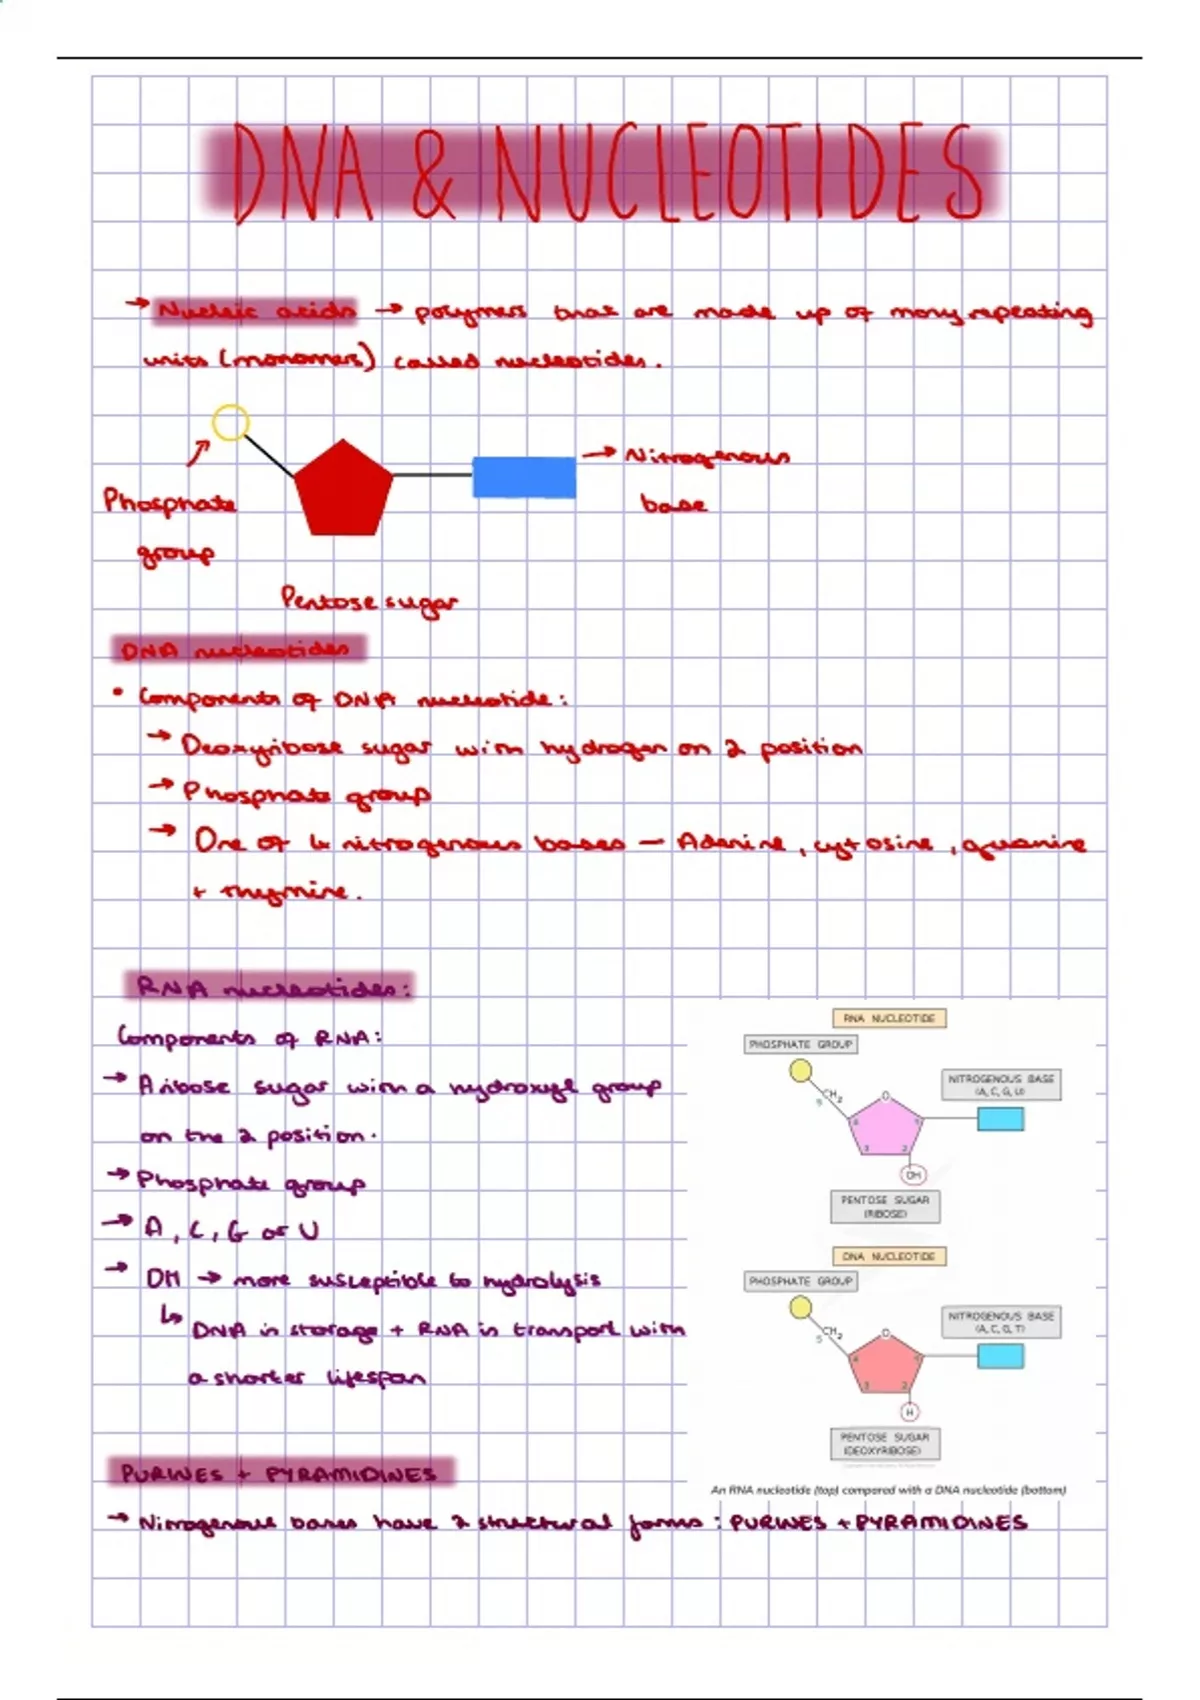 DNA & NUCLEOTIDES
→ Nucleic acids → polymers that are made up of many repeating
units (monomers) called nucleotides.
→ Nitrogenous
base
Phosphate
group
Pentose sugar
DNA nucleotides
• Components of DNA nucleotide:
→ Deoxyribose sugar with hydrogen on 2 position
→ Phosphate group
→ One of 4 nitrogenous bases – Adenine, cytosine, guanine
+ thymine.
RNA nucleotides:
Components of RNA:
→ A ribose sugar with a hydroxyl group
on the 2 position.
→ Phosphate group
→ A, C, G or U
→ OH → more susceptible to hydrolysis
↳ DNA is storage + RNA is transport with
a shorter lifespan
RNA NUCLEOTIDE
PHOSPHATE GROUP
NITROGENOUS BASE
(A, C, G, U)
CH2
5
O
4
1
3
2
OH
PENTOSE SUGAR
(RIBOSE)
DNA NUCLEOTIDE
PHOSPHATE GROUP
NITROGENOUS BASE
(A, C, G, T)
CH2
5
O
4
1
3
2
H
PENTOSE SUGAR
(DEOXYRIBOSE)
An RNA nucleotide (top) compared with a DNA nucleotide (bottom)
PURINES + PYRAMIDINES
→ Nitrogenous bases have 2 structural forms : PURINES + PYRAMIDINES